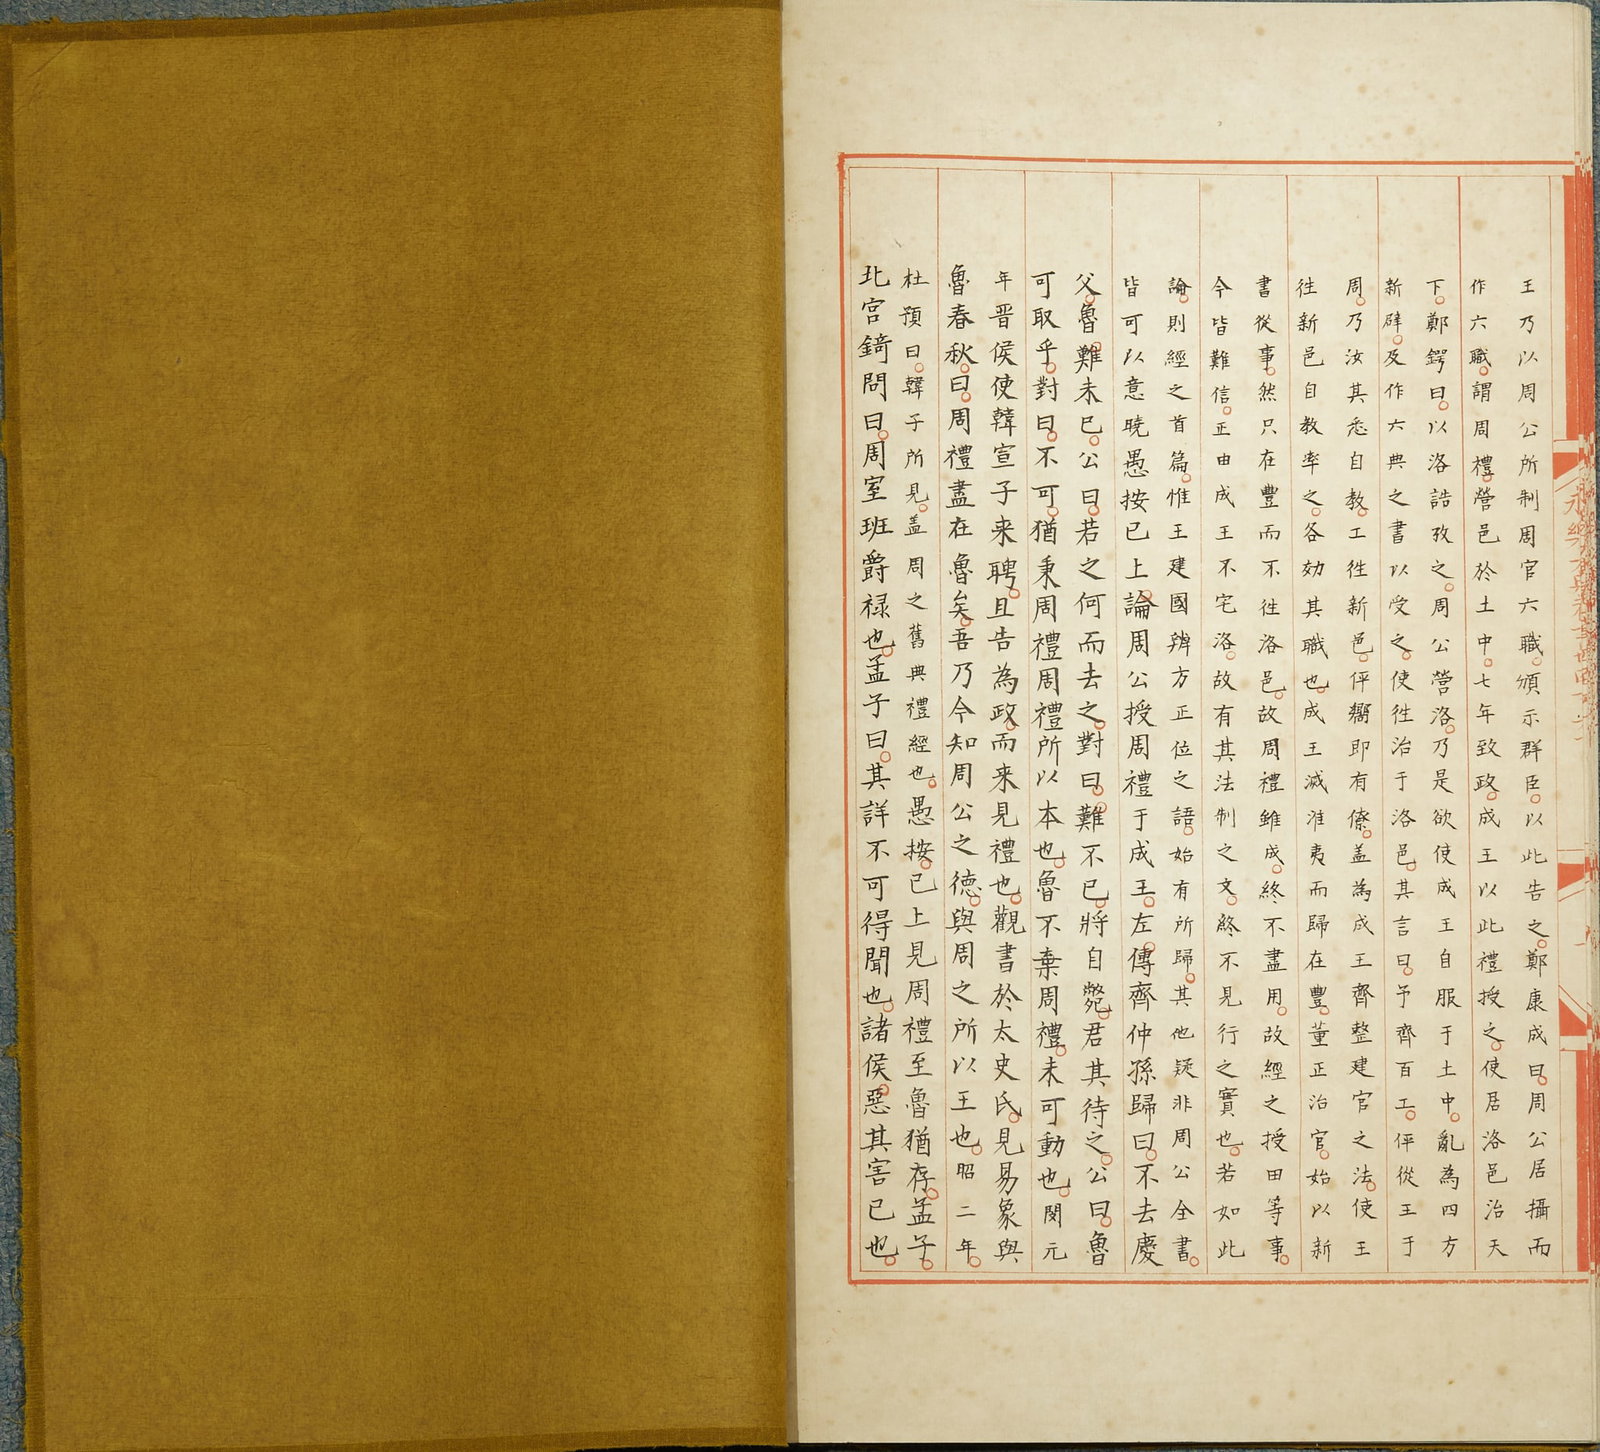 王乃以周公所制周官六職頒示群臣以此告之鄭康成曰周公居攝而
作六職謂周禮營邑於土中七年致政成王以此禮授之使居洛邑治天
下鄭鍔曰以洛誥攷之周公營洛乃是欲使成王自服于土中亂為四方
新辟及作六典之書以受之使徃治于洛邑其言曰予齊百工伻從王于
周乃汝其悉自教工徃新邑伻嚮即有僚盖為成王齊整建官之法使王
徃新邑自教率之各効其職也成王滅淮夷而歸在豐董正治官始以新
書從事然只在豐而不徃洛邑故周禮雖成終不盡用故經之授田等事
今皆難信正由成王不宅洛故有其法制之文終不見行之實也若如此
論則經之首篇惟王建國辨方正位之語始有所歸其他疑非周公全書
皆可以意曉愚按已上論周公授周禮于成王左傳齊仲孫歸曰不去慶
父魯難未已公曰若之何而去之對曰難不已將自斃君其待之公曰魯
可取乎對曰不可猶秉周禮周禮所以本也魯不棄周禮未可動也閔元
年晋侯使韓宣子来聘且告為政而来見禮也觀書於太史氏見易象與
魯春秋曰周禮盡在魯矣吾乃今知周公之德與周之所以王也昭二年
杜預曰韓子所見盖周之舊典禮經也愚按已上見周禮至魯猶存孟子
北宮錡問曰周室班爵禄也孟子曰其詳不可得聞也諸侯惡其害已也